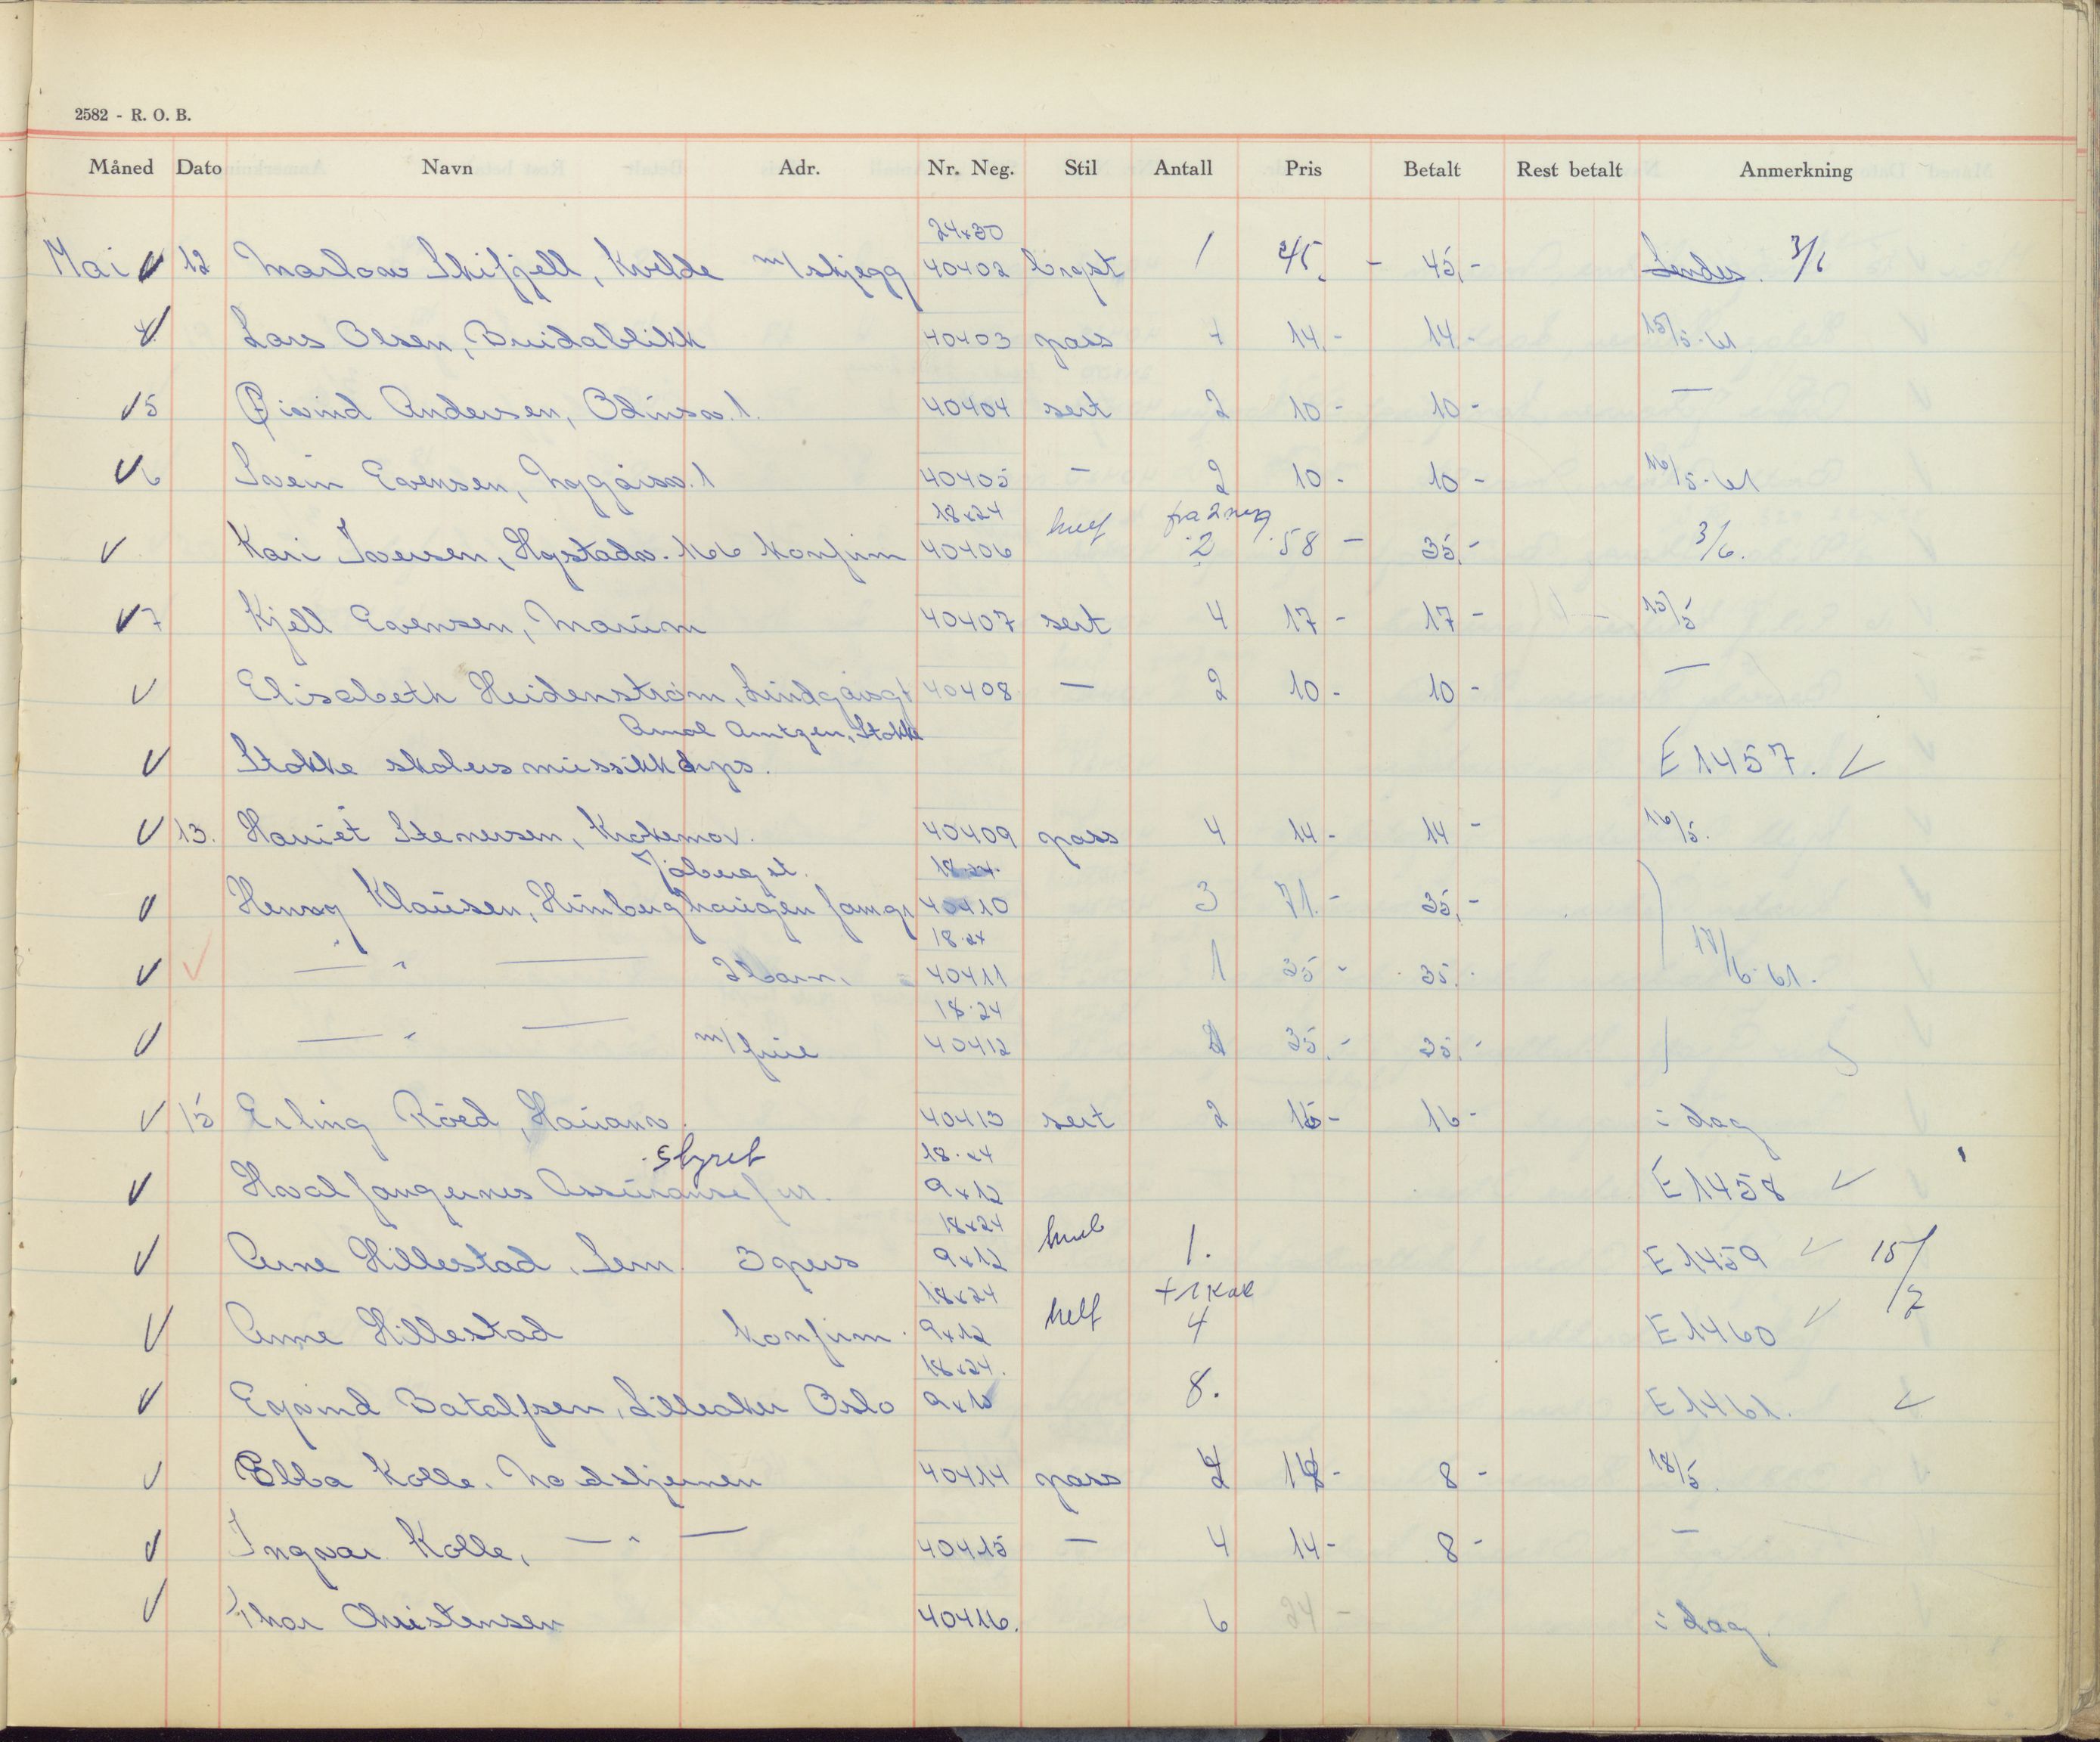 2582 - R. O. B.
Måned Dato Navn Adr. Nr. Neg. Stil Antall Pris Betalt Rest betalt Anmerkning
24x30
Mai 12 Skifjell, Kvelde m/skjegg 40402 1 45,- Sendes. 3/6
Lars Olsen, Breidablikk 40403 pass 4 14,- 14,- 15/5-61
5 Øivind Andersen, Odinsv. 1. 40404 sert 2 10- 10- —
6 Svein Evensen, 1 40405 — 2 10- 10- 16/5-61
18x24 fra 2 neg
Kari Iversen, Hystadv. 166 Konfirm 40406 helf 2 58- 35,- 3/6.
7 Kjell Evensen, Marum 40407 sert 4 17- 17- 15/5
Elisabeth Heidenstrøm, Lindgårsgt 40408 — 2 10- 10- —
Arntzen, Stokke
Stokke skolers musikkorps. E 1457.
13. Harriet Stenersen, Krokemov. 40409 pass 4 14- 14- 16/5.
Jåberg st. 18-24.
Henry Klausen, Himberghaugen famgr 40410 3 71,- 35,-
18-24
— " — 2 barn. 40411 1 35- 35. 17/6-61.
18-24
— " — m/frue 40412 35,- 35,-
15 Erling Röed, Hauanv. 40413 sert 2 16- 16- i dag
styret 18-24
Hvalfangernes Assuransefor. 9x12 E 1458
18x24
Arne Hillestad, Sem. 3 pers 9x12 1. E 1459 15/7
18x24 +1 kab
Anne Hillestad Konfirm. 9x12 helf 4 E 1460
18x24.
Eyvind Batalfsen, Lilleaker Oslo 9x12 8. E 1461.
Ebba Kolle. Nordstjernen 40414 pass 8- 18/5.
Ingvar Kolle, — " — 40415 — 4 14- 8- —
Thor Christensen 40416. 6 24- i dag.